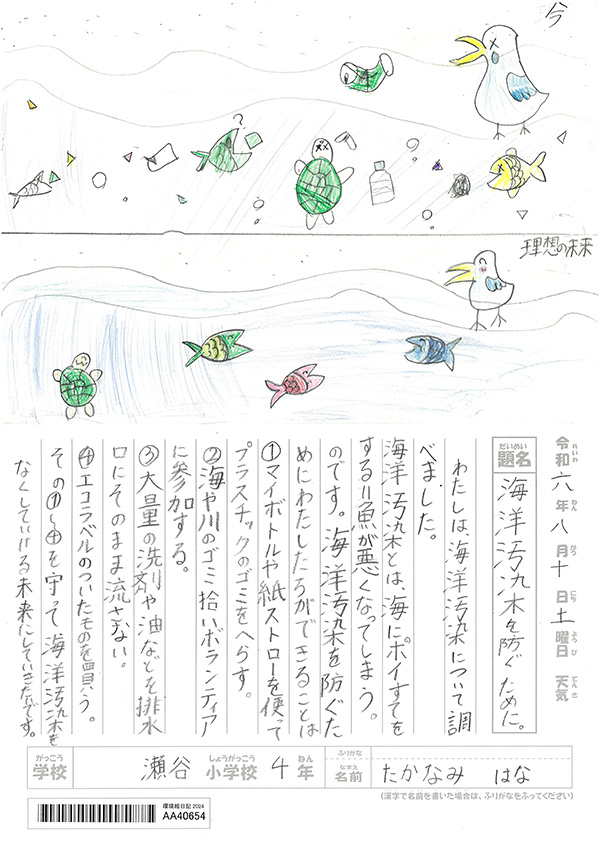 今
?
理想の未来
令和六年八月十日土曜日 天気
れいわ ねん がつ にち ようび てんき
だいめい
題名 海洋汚染を防ぐために。
わたしは、海洋汚染について調
べました。
海洋汚染とは、海にポイすてを
する=魚が悪くなってしまう。
のです。海洋汚染を防ぐた
めにわたしたちができることは
①マイボトルや紙ストローを使って
プラスチックのゴミをへらす。
②海や川のゴミ拾いボランティア
に参加する。
③大量の洗剤や油などを排水
口にそのまま流さない。
④エコラベルのついたものを買う。
その①~④を守って海洋汚染を
なくしていける未来にしていきたいです。
がっこう しょうがっこう ねん ふりがな
学校 瀬谷 小学校 4年
なまえ
名前 たかなみ はな
(漢字で名前を書いた場合は、ふりがなをふってください)
環境絵日記2024
AA40654